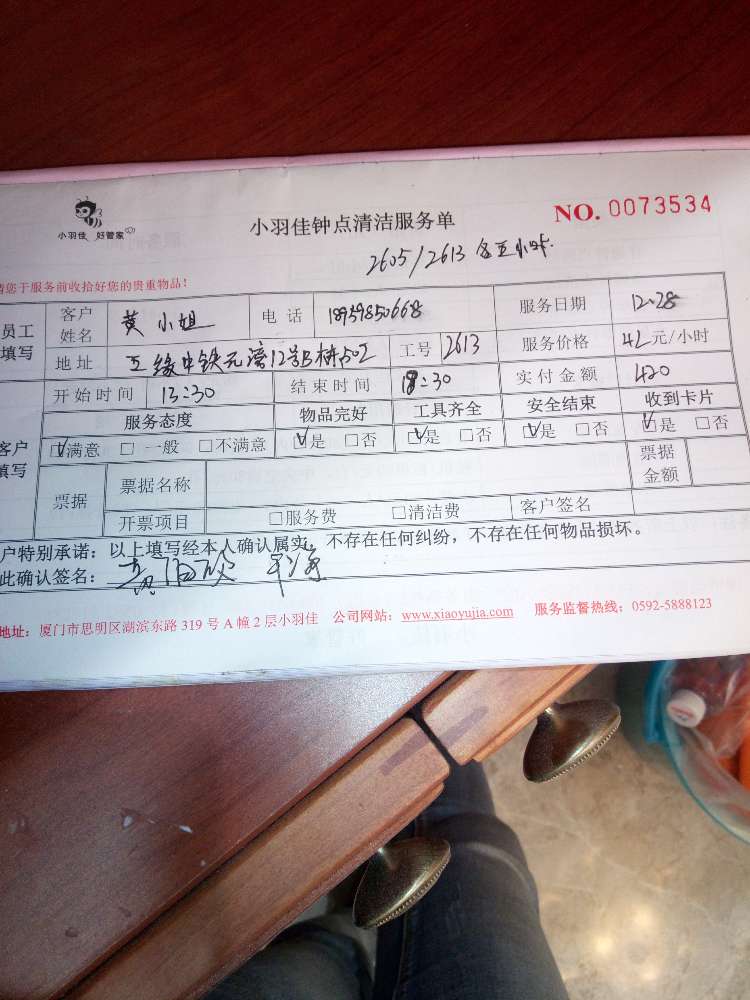 小羽佳 好管家
小羽佳钟点清洁服务单
NO. 0073534
2605/2613 各5小时
请您于服务前收拾好您的贵重物品！
员工填写
客户姓名 黄小姐 电话 18959850668 服务日期 12.28
地址 中铁元湾12号B栋 工号 2613 服务价格 42元/小时
开始时间 13:30 结束时间 18:30 实付金额 420
客户填写
服务态度 物品完好 工具齐全 安全结束 收到卡片
☑满意 □一般 □不满意 ☑是 □否 ☑是 □否 ☑是 □否 ☑是 □否
票据 票据名称 票据金额
开票项目 □服务费 □清洁费 客户签名
户特别承诺：以上填写经本人确认属实，不存在任何纠纷，不存在任何物品损坏。
此确认签名：
地址：厦门市思明区湖滨东路 319 号 A 幢 2 层小羽佳 公司网站：www.xiaoyujia.com 服务监督热线：0592-5888123